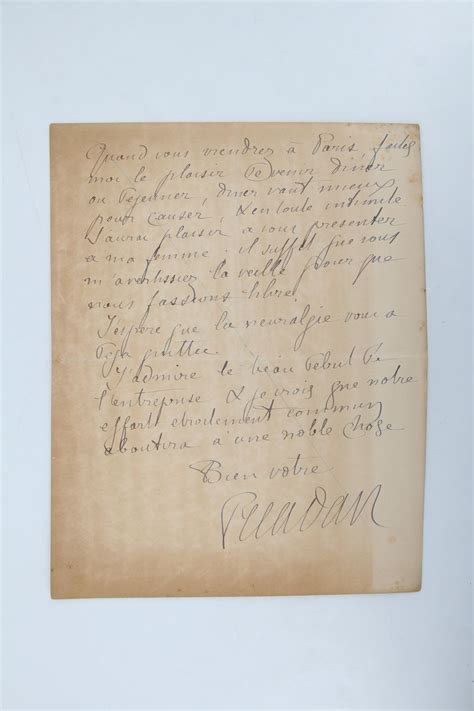 Quand vous viendrez à Paris, faites
moi le plaisir de venir diner
ou déjeuner, diner vaut mieux
pour causer, & en toute intimité
J'aurai plaisir à vous présenter
à ma femme. il suffit que vous
m'avertissiez la veille pour que
nous fassions libre.
J'espère que la neuralgie vous a
déja quittée.
J'admire le beau début de
l'entreprise & je crois que notre
effort étroitement commun
aboutira à une noble chose
Bien votre
Peladan